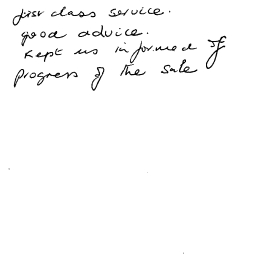 first class service.
good advice.
Kept us informed of
progress of the sale